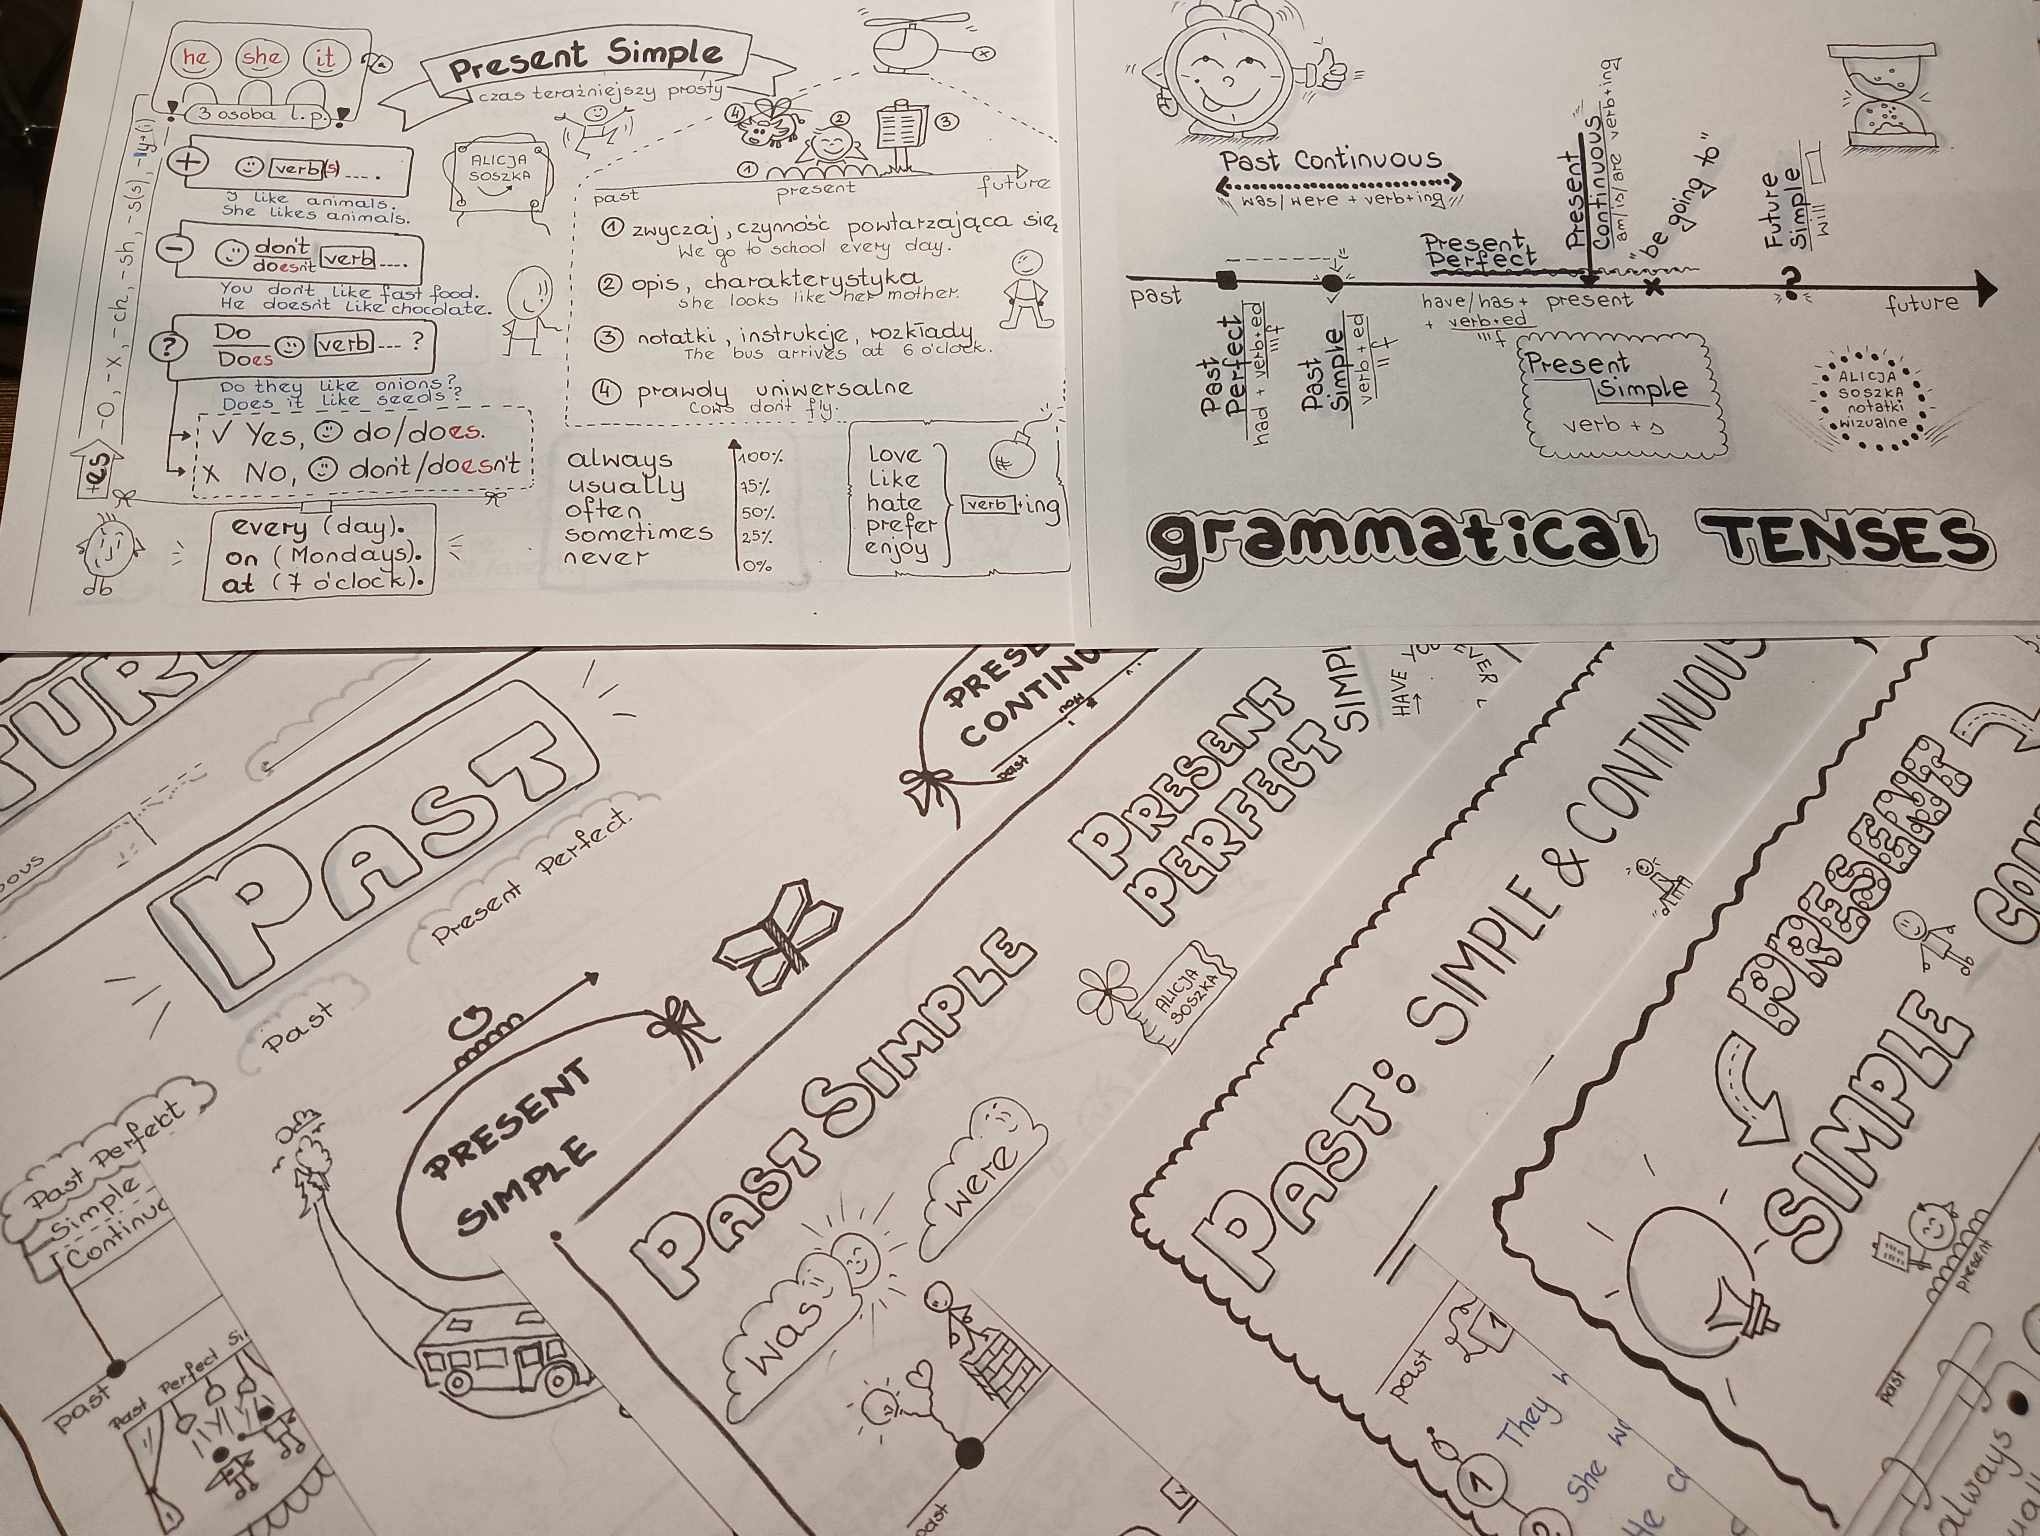 he she it
3 osoba l.p.
+es -o, -x, -ch, -sh, -s(s), -y→(i)
+ verb(s) ....
I like animals.
She likes animals.
- don't doesn't verb ....
You don't like fast food.
He doesn't like chocolate.
? Do Does verb ... ?
Do they like onions?
Does it like seeds?
✓ Yes, ☺ do/does.
x No, ☺ don't/doesn't
every (day).
on (Mondays).
at (7 o'clock).
Present Simple
czas teraźniejszy prosty
ALICJA
SOSZKA
4 2 3
1
past present future
1 zwyczaj, czynność powtarzająca się
We go to school every day.
2 opis, charakterystyka
She looks like her mother.
3 notatki, instrukcje, rozkłady
The bus arrives at 6 o'clock.
4 prawdy uniwersalne
Cows don't fly.
always 100%
usually 75%
often 50%
sometimes 25%
never 0%
Love
Like
hate
prefer
enjoy
verb+ing
Past Continuous
was/were + verb+ing
Present
Continuous
am/is/are verb+ing
"be going to"
Future
Simple
will
Present
Perfect
past present future
have/has +
+ verb+ed
III f
Past
Perfect
had + verb+ed
III f
Past
Simple
verb+ed
II f
Present
Simple
verb + s
ALICJA
SOSZKA
notatki
wizualne
grammatical TENSES
PAST
Past Present Perfect.
Past Perfekt
Simple
past
Past Perfect
PRESENT
SIMPLE
now
past
PAST SIMPLE
was were
past
PRESENT
PERFECT
HAVE
ALICJA
SOSZKA
PAST: SIMPLE & CONTINUOUS
past 1
1 They
She
2
PRESENT
SIMPLE
present
past
always